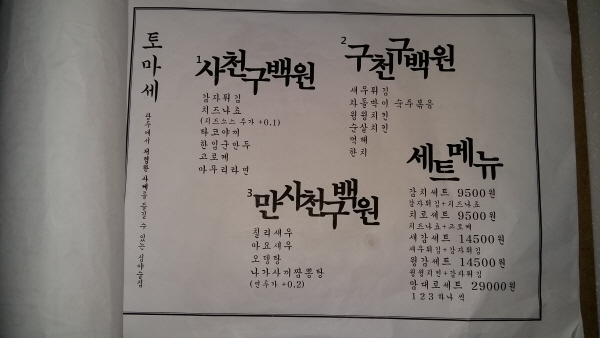 토마세
광주에서 저렴한 가격을 즐길 수 있는 심야술집
1
사천구백원
감자튀김
치즈나쵸
(치즈소스 추가 +0.1)
타코야끼
한입군만두
고로케
아무리라면
2
구천구백원
새우튀김
차돌박이 숙주볶음
윙윙치킨
순살치킨
먹태
한치
3
만사천구백원
칠리새우
마요새우
오뎅탕
나가사끼짬뽕탕
(면추가 +0.2)
세트메뉴
감치세트 9500원
감자튀김+치즈나쵸
치로세트 9500원
치즈나쵸+고로케
새감세트 14500원
새우튀김+감자튀김
윙감세트 14500원
윙윙치킨+감자튀김
맘대로세트 29000원
1 2 3 하나 씩